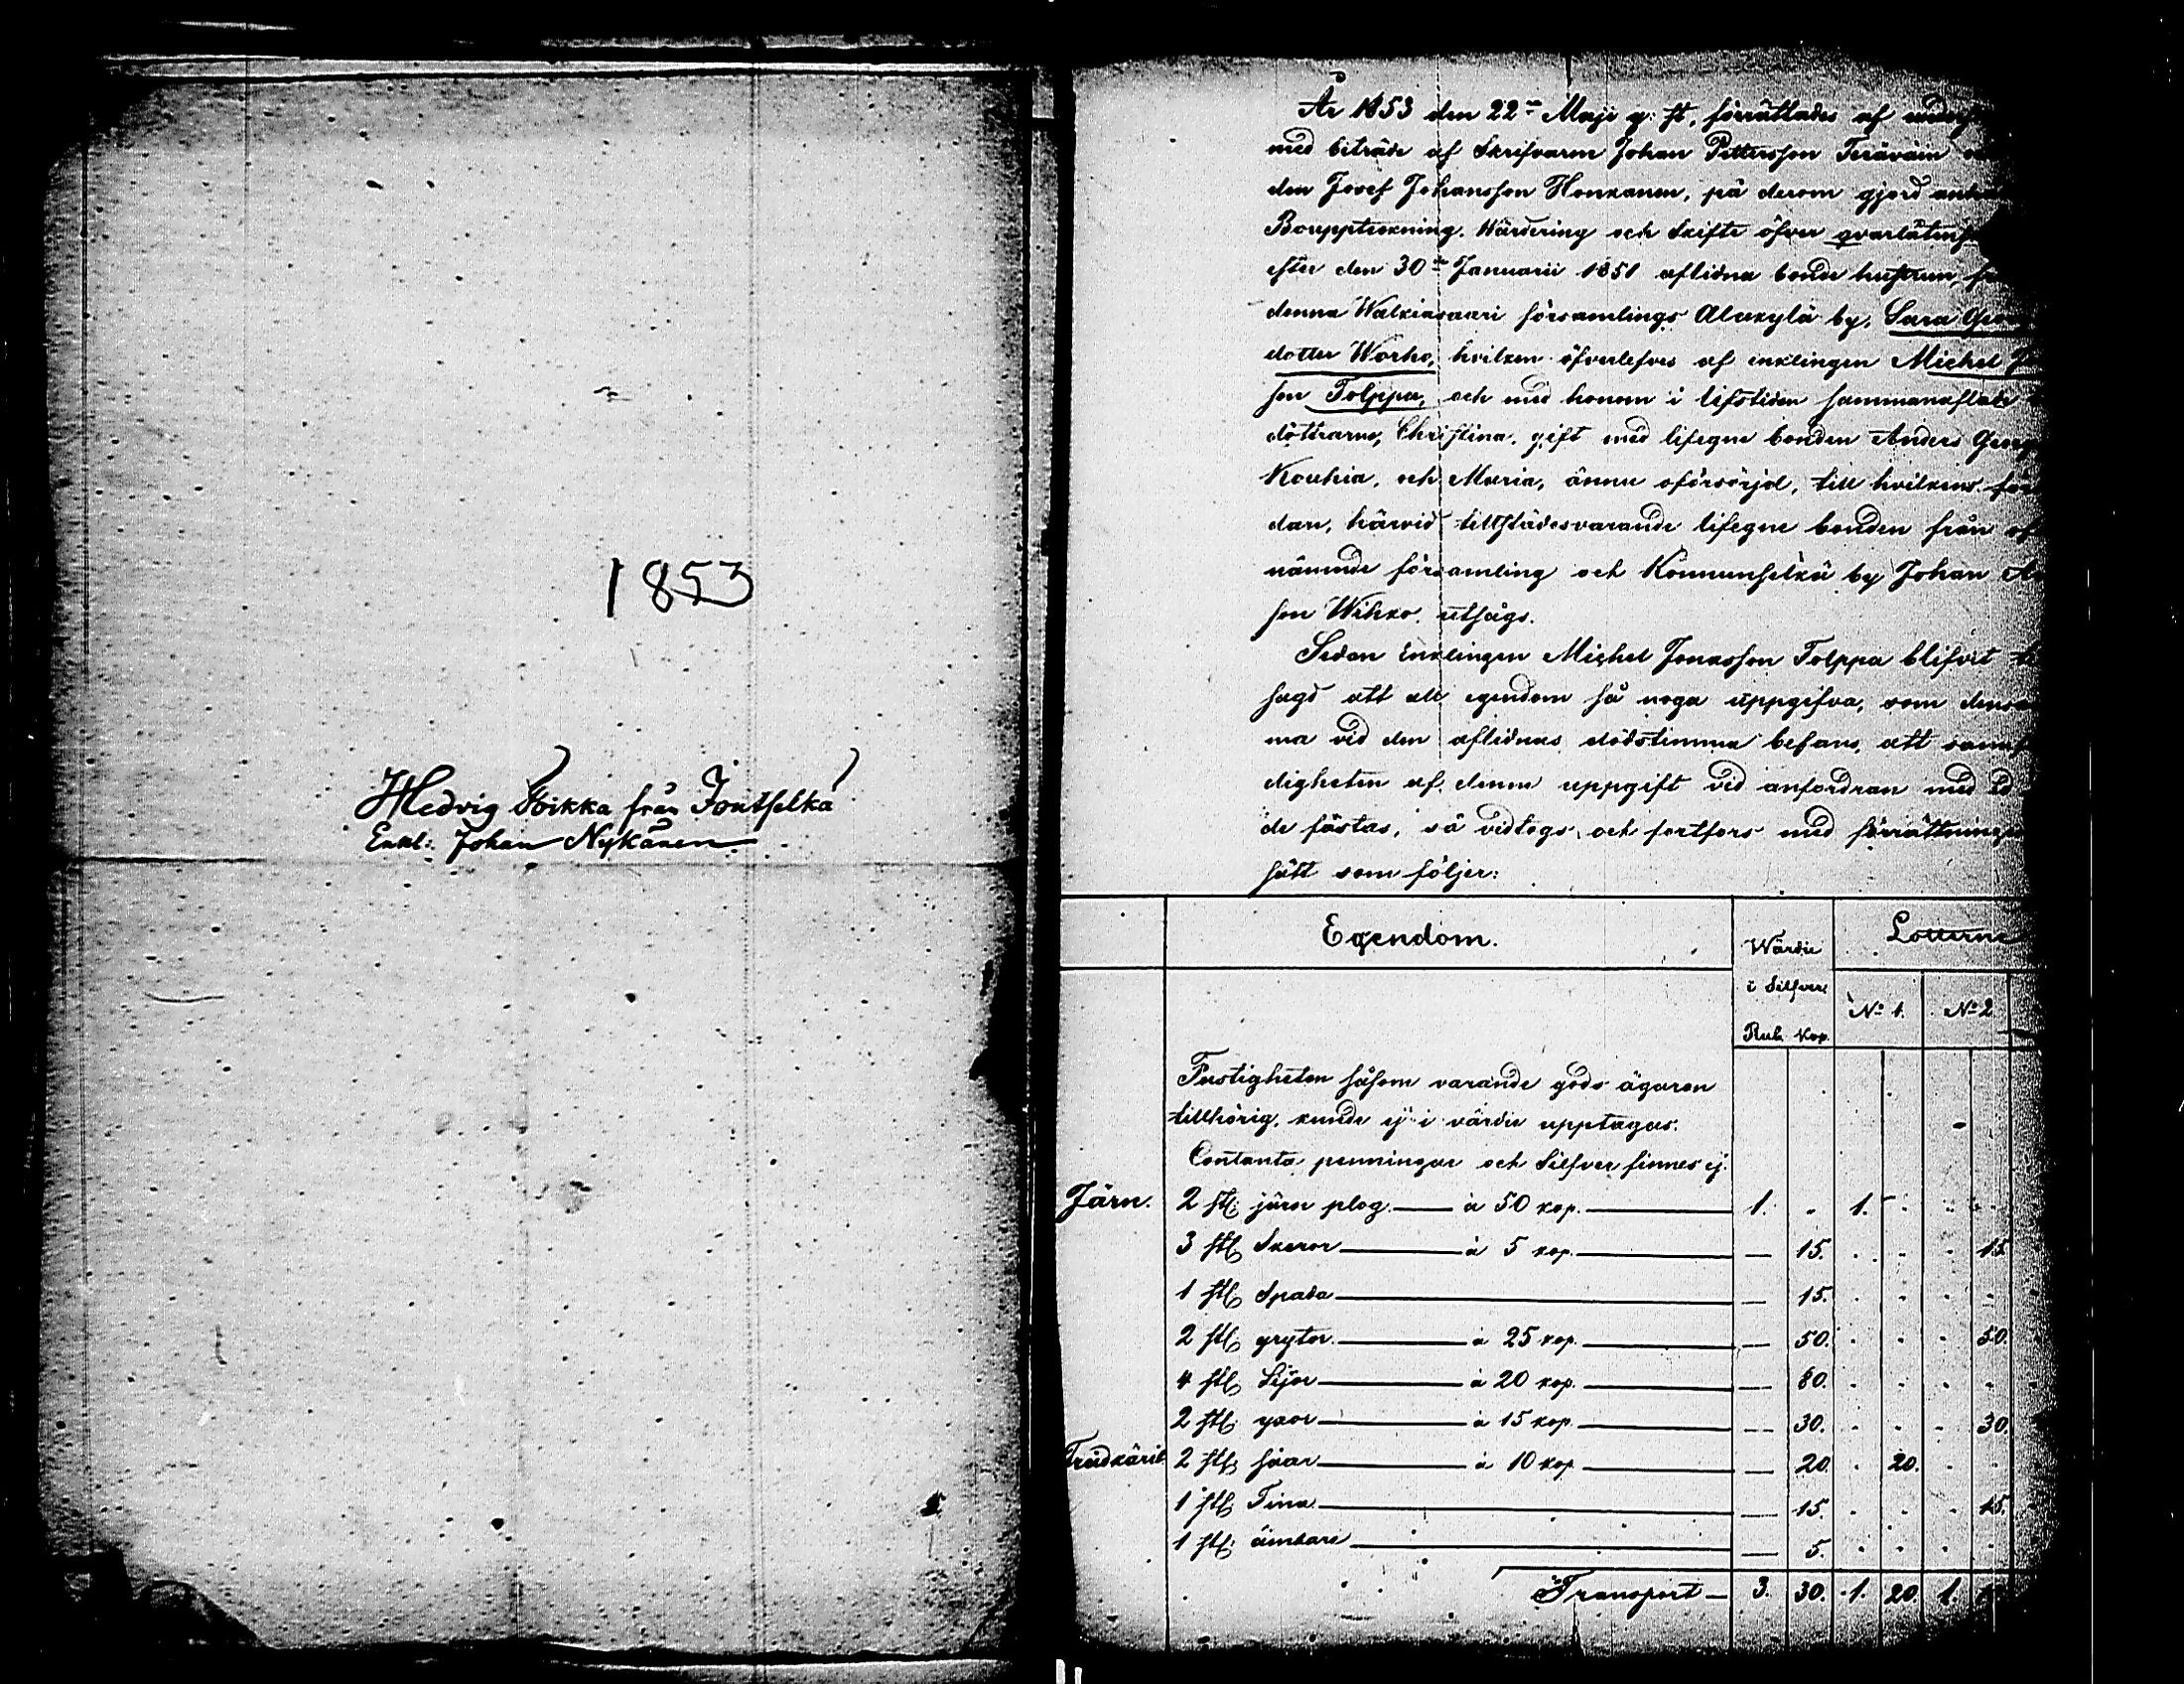 1853
Hedvig Toikka från Joutselkä
Enkl: Johan Nykänen
År 1853 den 22 Maji g: st, förrättades af
med biträde af Skrifvaren Johan Pettersson Teräväin
den Josef Johansson Honkanen, på derom gjord
Bouppteckning, Wärdering och Skifte öfver
efter den 30 Januarii 1851 aflidna bonde hustrun,
denna Walkiasaari församlings Alakylä by, Sara
dotter Worho, hvilken öfverlefves af enklingen Michel
son Tolppa, och med honom i lifstiden sammanaflade
döttrarne, Christina, gift med lifegne bonden Anders
Kouhia, och Maria, ännu oförsörjd, till hvilkens
dan, härvid tillstädesvarande lifegne bonden från
nämnde församling och Konnunselkä by Johan
son Wihko, utsågs.
Sedan Enklingen Michel Jonasson Tolppa blifvit
sagd att all egendom så noga uppgifva, som
ma vid den aflidnas dödstimma befans, att
digheten af denna uppgift vid anfordran med Ed
de fästas, så vidtogs och fortfors med
sätt som följer:
Egendom. Wärdie Lotterne
i Silfver No 1. No 2
Rub. Kop.
Fastigheten såsom varande gods ägaren
tillhörig, kunde ej i värdie upptagas.
Contanta penningar och Silfver finnes ej.
Järn. 2 st: järn plog à 50 kop. 1. . 1.
3 st: Skeror à 5 kop. — 15. 15
1 st: Spada — 15.
2 st: grytor à 25 kop. — 50. 50.
4 st: Lijor à 20 kop. — 80.
2 st: yxor à 15 kop. — 30. 30.
Trädkäril 2 st: såar à 10 kop — 20. 20.
1 st: Tina — 15. 15.
1 st: ämbare — 5.
Transport — 3. 30. 1. 20. 1.